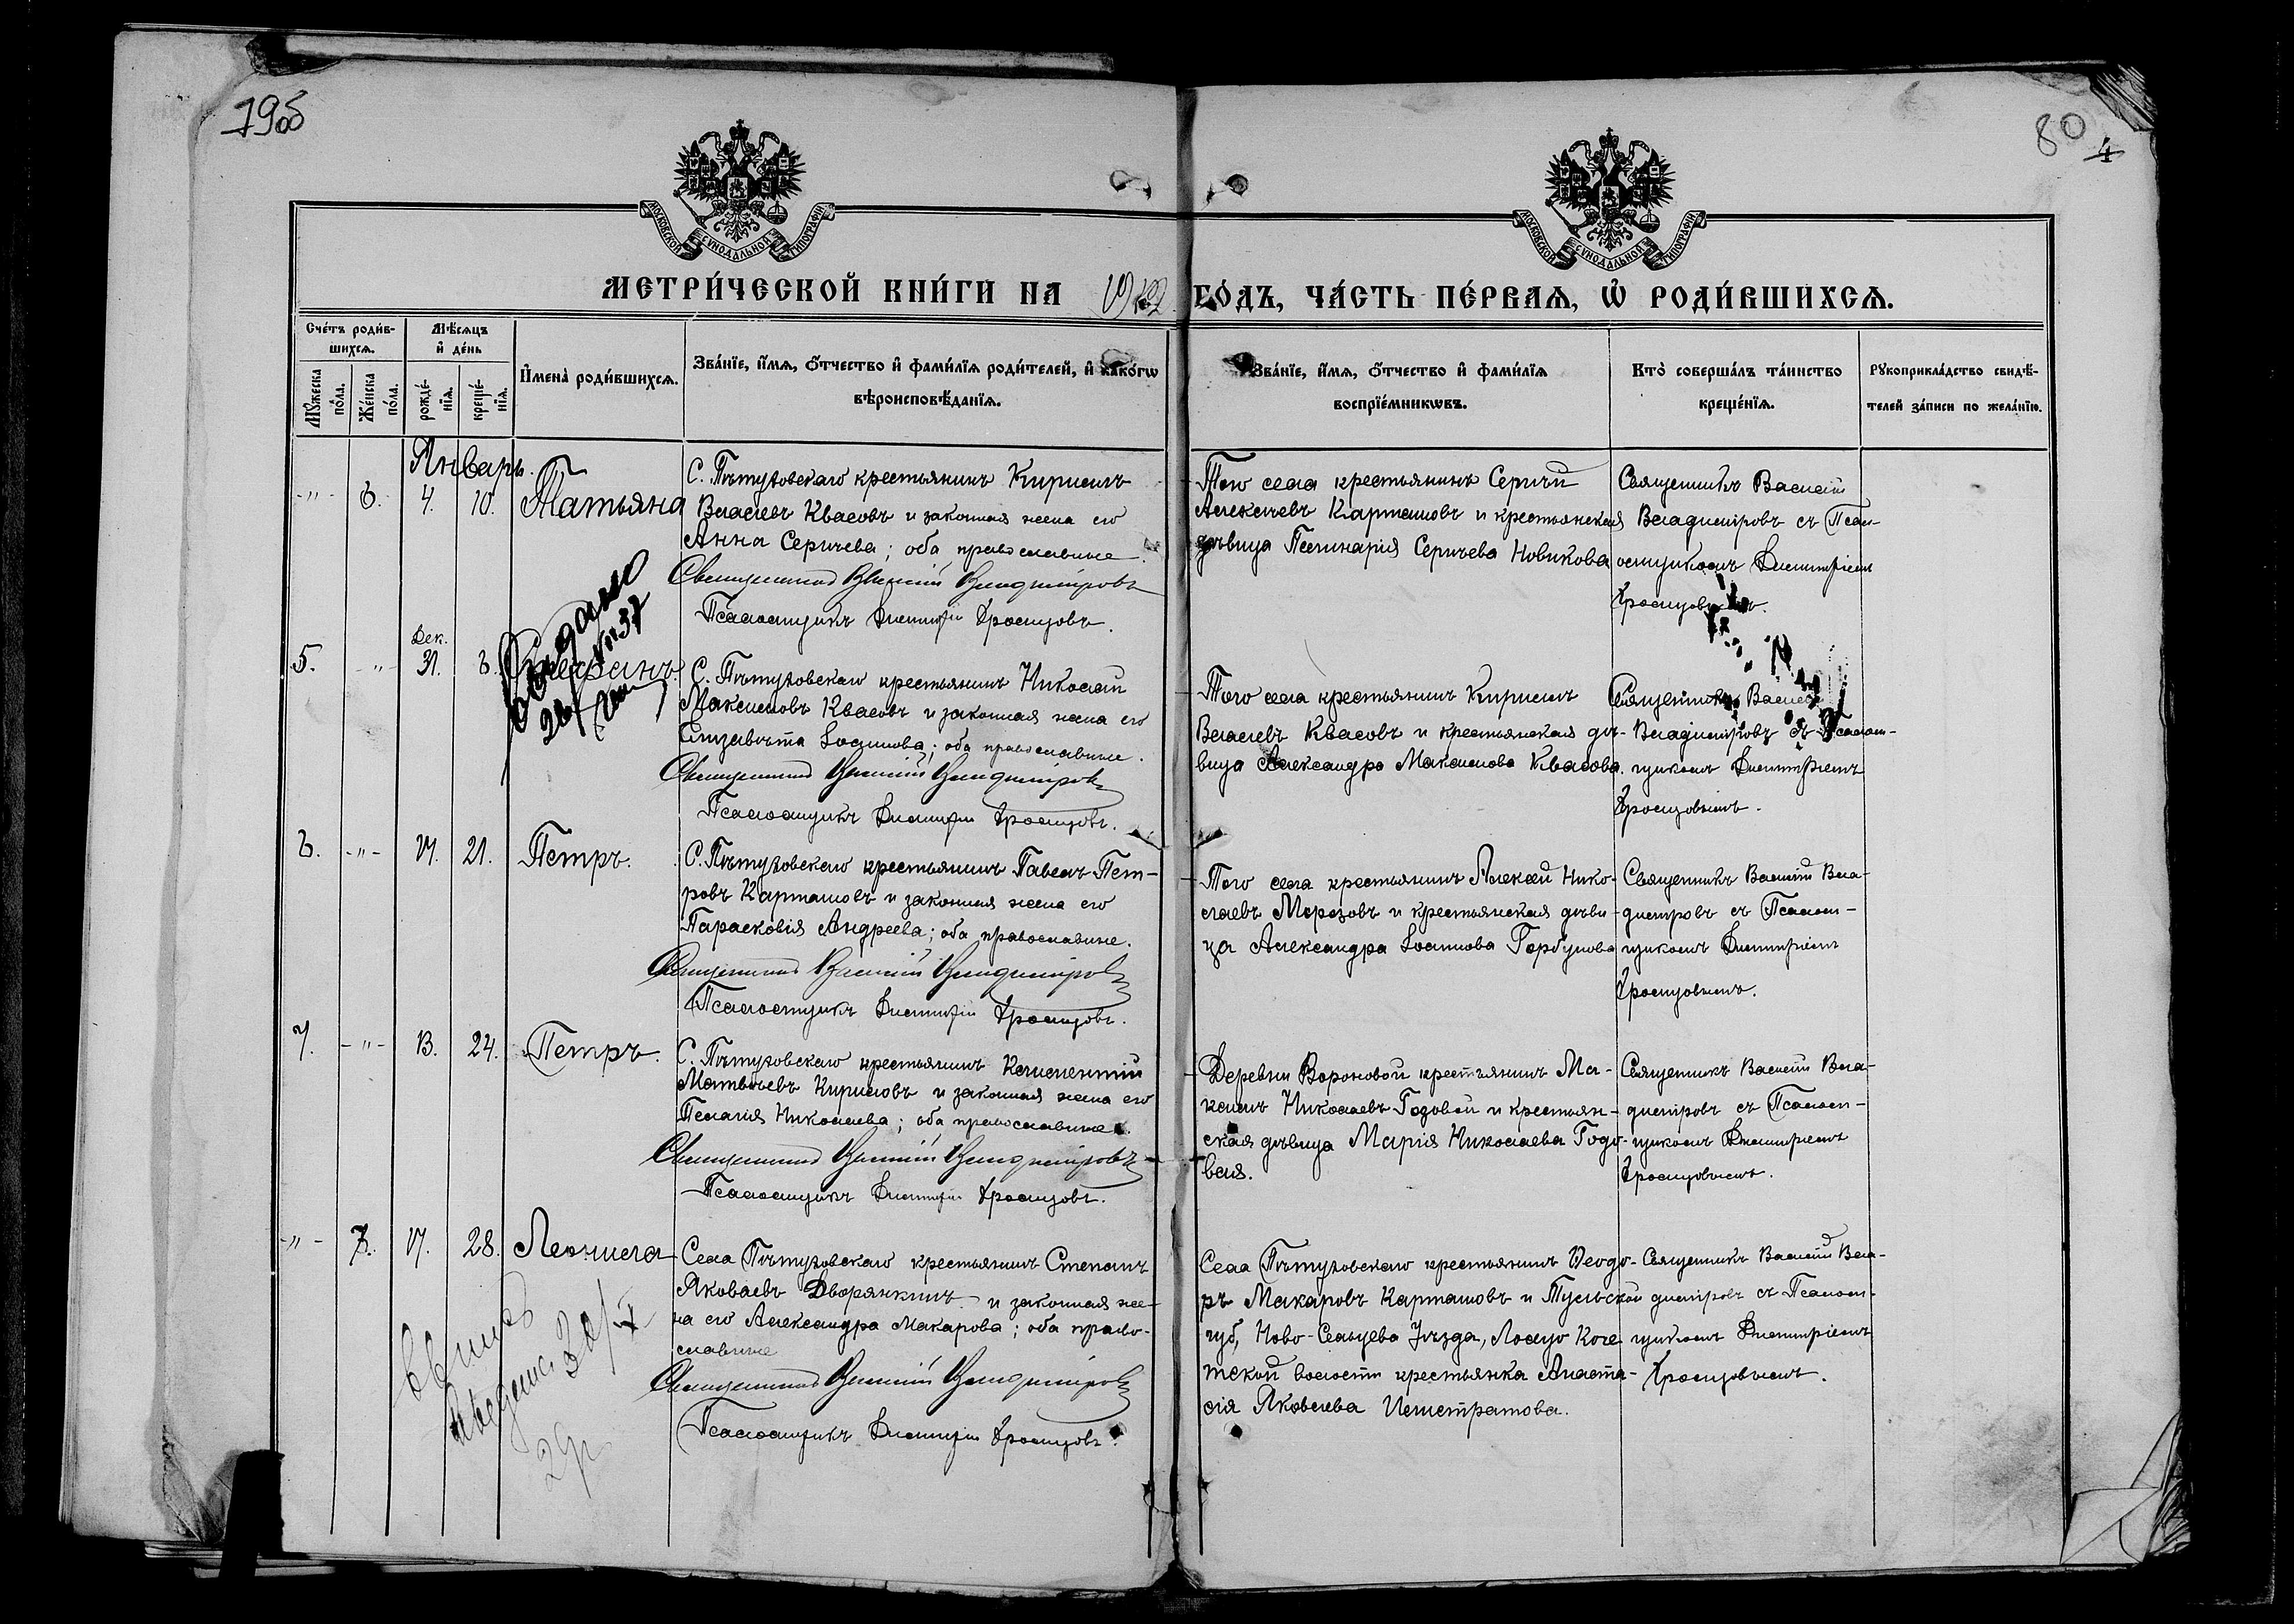 79об
80
4
МОСКОВСКОЙ СѴНОДАЛЬНОЙ ТИПОГРАФІИ
МОСКОВСКОЙ СѴНОДАЛЬНОЙ ТИПОГРАФІИ
МЕТРИ́ЧЕСКОЙ КНИ́ГИ НА 19 ГО́ДЪ, ЧА́СТЬ ПЕ́РВАѦ, Ѽ РОДИ́ВШИХСѦ.
Сче́тъ роди́в-
шихсѧ.
Мꙋ́жеска по́ла.
Же́нска по́ла.
Мѣ́сѧцъ и҆ де́нь
рожде́-
нїѧ.
креще́-
нїѧ.
И҆мена̀ роди́вшихсѧ.
Зва́нїе, и҆́мѧ, ѻ҆́тчество и҆ фами́лїѧ роди́телей, и҆ како́гѡ
вѣроисповѣ́данїѧ.
Зва́нїе, и҆́мѧ, ѻ҆́тчество и҆ фами́лїѧ
воспрїе́мникѡвъ.
Кто̀ соверша́лъ та́инство
креще́нїѧ.
Рꙋкоприкла́дство свидѣ́-
телей за́писи по жела́нїю.
Январь.
-"- 6. 4. 10. Татьяна
С. Пѣтуховскаго крестьянинъ Кириллъ
Власіевъ Квасовъ и законная жена его
Анна Сергіева; оба православные.
Священникъ Василій Владиміровъ
Псаломщикъ Димитрій Хромцовъ.
Того села крестьянинъ Сергій
Алексіевъ Карташовъ и крестьянская
дѣвица Сергіева Новикова
Священникъ Василій
Владиміровъ съ Псал-
омщикомъ Димитріемъ
Хромцовымъ.
Дек.
5. -"- 31. 6. Стефанъ.
Выдано
№ 37
26/
С. Пѣтуховскаго крестьянинъ Николай
Максимовъ Квасовъ и законная жена его
Елизавѣта Іоаннова; оба православные.
Священникъ Василій Владиміровъ
Псаломщикъ Димитрій Хромцовъ.
Того села крестьянинъ Кириллъ
Власіевъ Квасовъ и крестьянская дѣ-
вица Александра Максимова Квасова.
Священникъ Василій
Владиміровъ съ Псалом-
щикомъ Димитріемъ
Хромцовымъ.
6. -"- 17. 21. Петръ.
С. Пѣтуховскаго крестьянинъ Павелъ Пет-
ровъ Карташовъ и законная жена его
Парасковія Андреева; оба православные.
Священникъ Василій Владиміровъ
Псаломщикъ Димитрій Хромцовъ.
Того села крестьянинъ Алексій Нико-
лаевъ Морозовъ и крестьянская дѣви-
ца Александра Іоаннова Горбунова
Священникъ Василій Вла-
диміровъ съ Псалом-
щикомъ Димитріемъ
Хромцовымъ.
7. -"- 13. 24. Петръ.
С. Пѣтуховскаго крестьянинъ Климентій
Матвѣевъ Кирилловъ и законная жена его
Пелагія Николаева; оба православные.
Священникъ Василій Владиміровъ
Псаломщикъ Димитрій Хромцовъ.
Деревни Вороновой крестьянинъ Ма-
ксимъ Николаевъ Годовой и крестьян-
ская дѣвица Марія Николаева Годо-
вая.
Священникъ Василій Вла-
диміровъ съ Псалом-
щикомъ Димитріемъ
Хромцовымъ.
-"- 7. 17. 28. Леонила
30/V
29г
Села Пѣтуховскаго крестьянинъ Степанъ
Яковлевъ Дворянкинъ и законная же-
на его Александра Макарова; оба право-
славные
Священникъ Василій Владиміровъ
Псаломщикъ Димитрій Хромцовъ.
Села Пѣтуховскаго крестьянинъ Ѳеодо-
ръ Макаровъ Карташовъ и Тульской
губ, Ново-Сельцева Уѣзда,
волости крестьянка Анаста-
сія Яковлева
Священникъ Василій Вла-
диміровъ съ Псалом-
щикомъ Димитріемъ
Хромцовымъ.